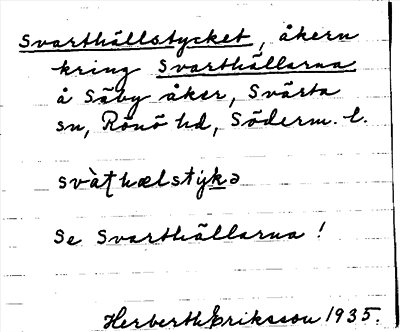 Svarthällstycket, åkern
kring Svarthällarna
å Säby åker, Svärta
sn, Rönö hd, Söderm. l.
svàʈhælstýkə
Se Svarthällarna!
Herberth Eriksson 1935.